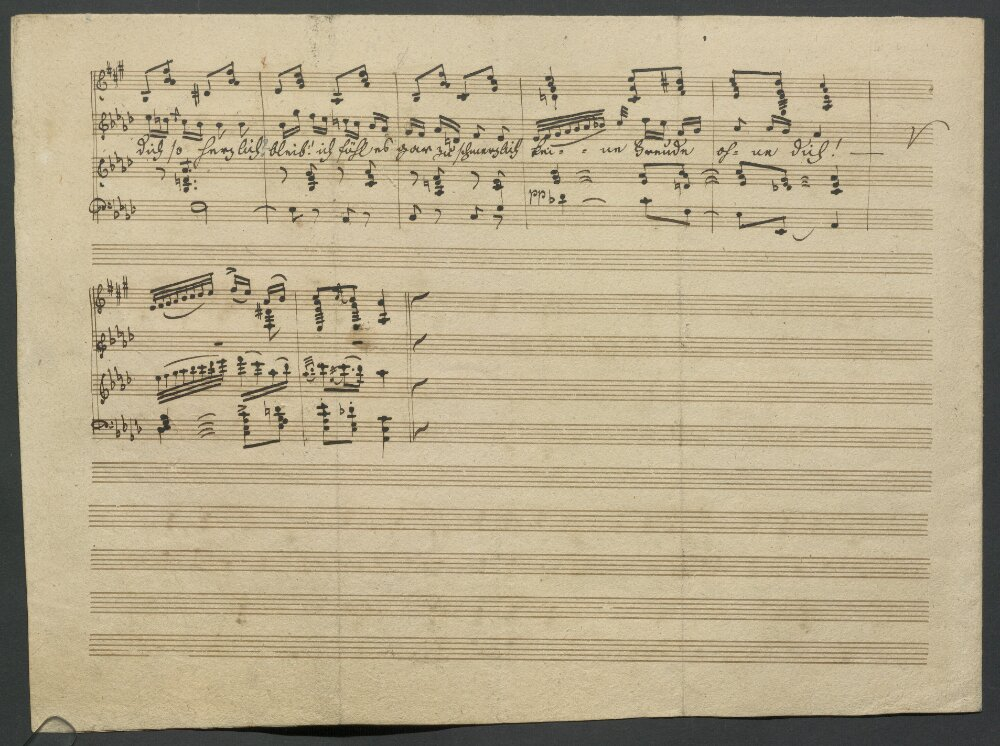 dich so herzlich, bleib! ich fühl es gar zu schmerzlich kei - - ne Freude oh - ne dich! —